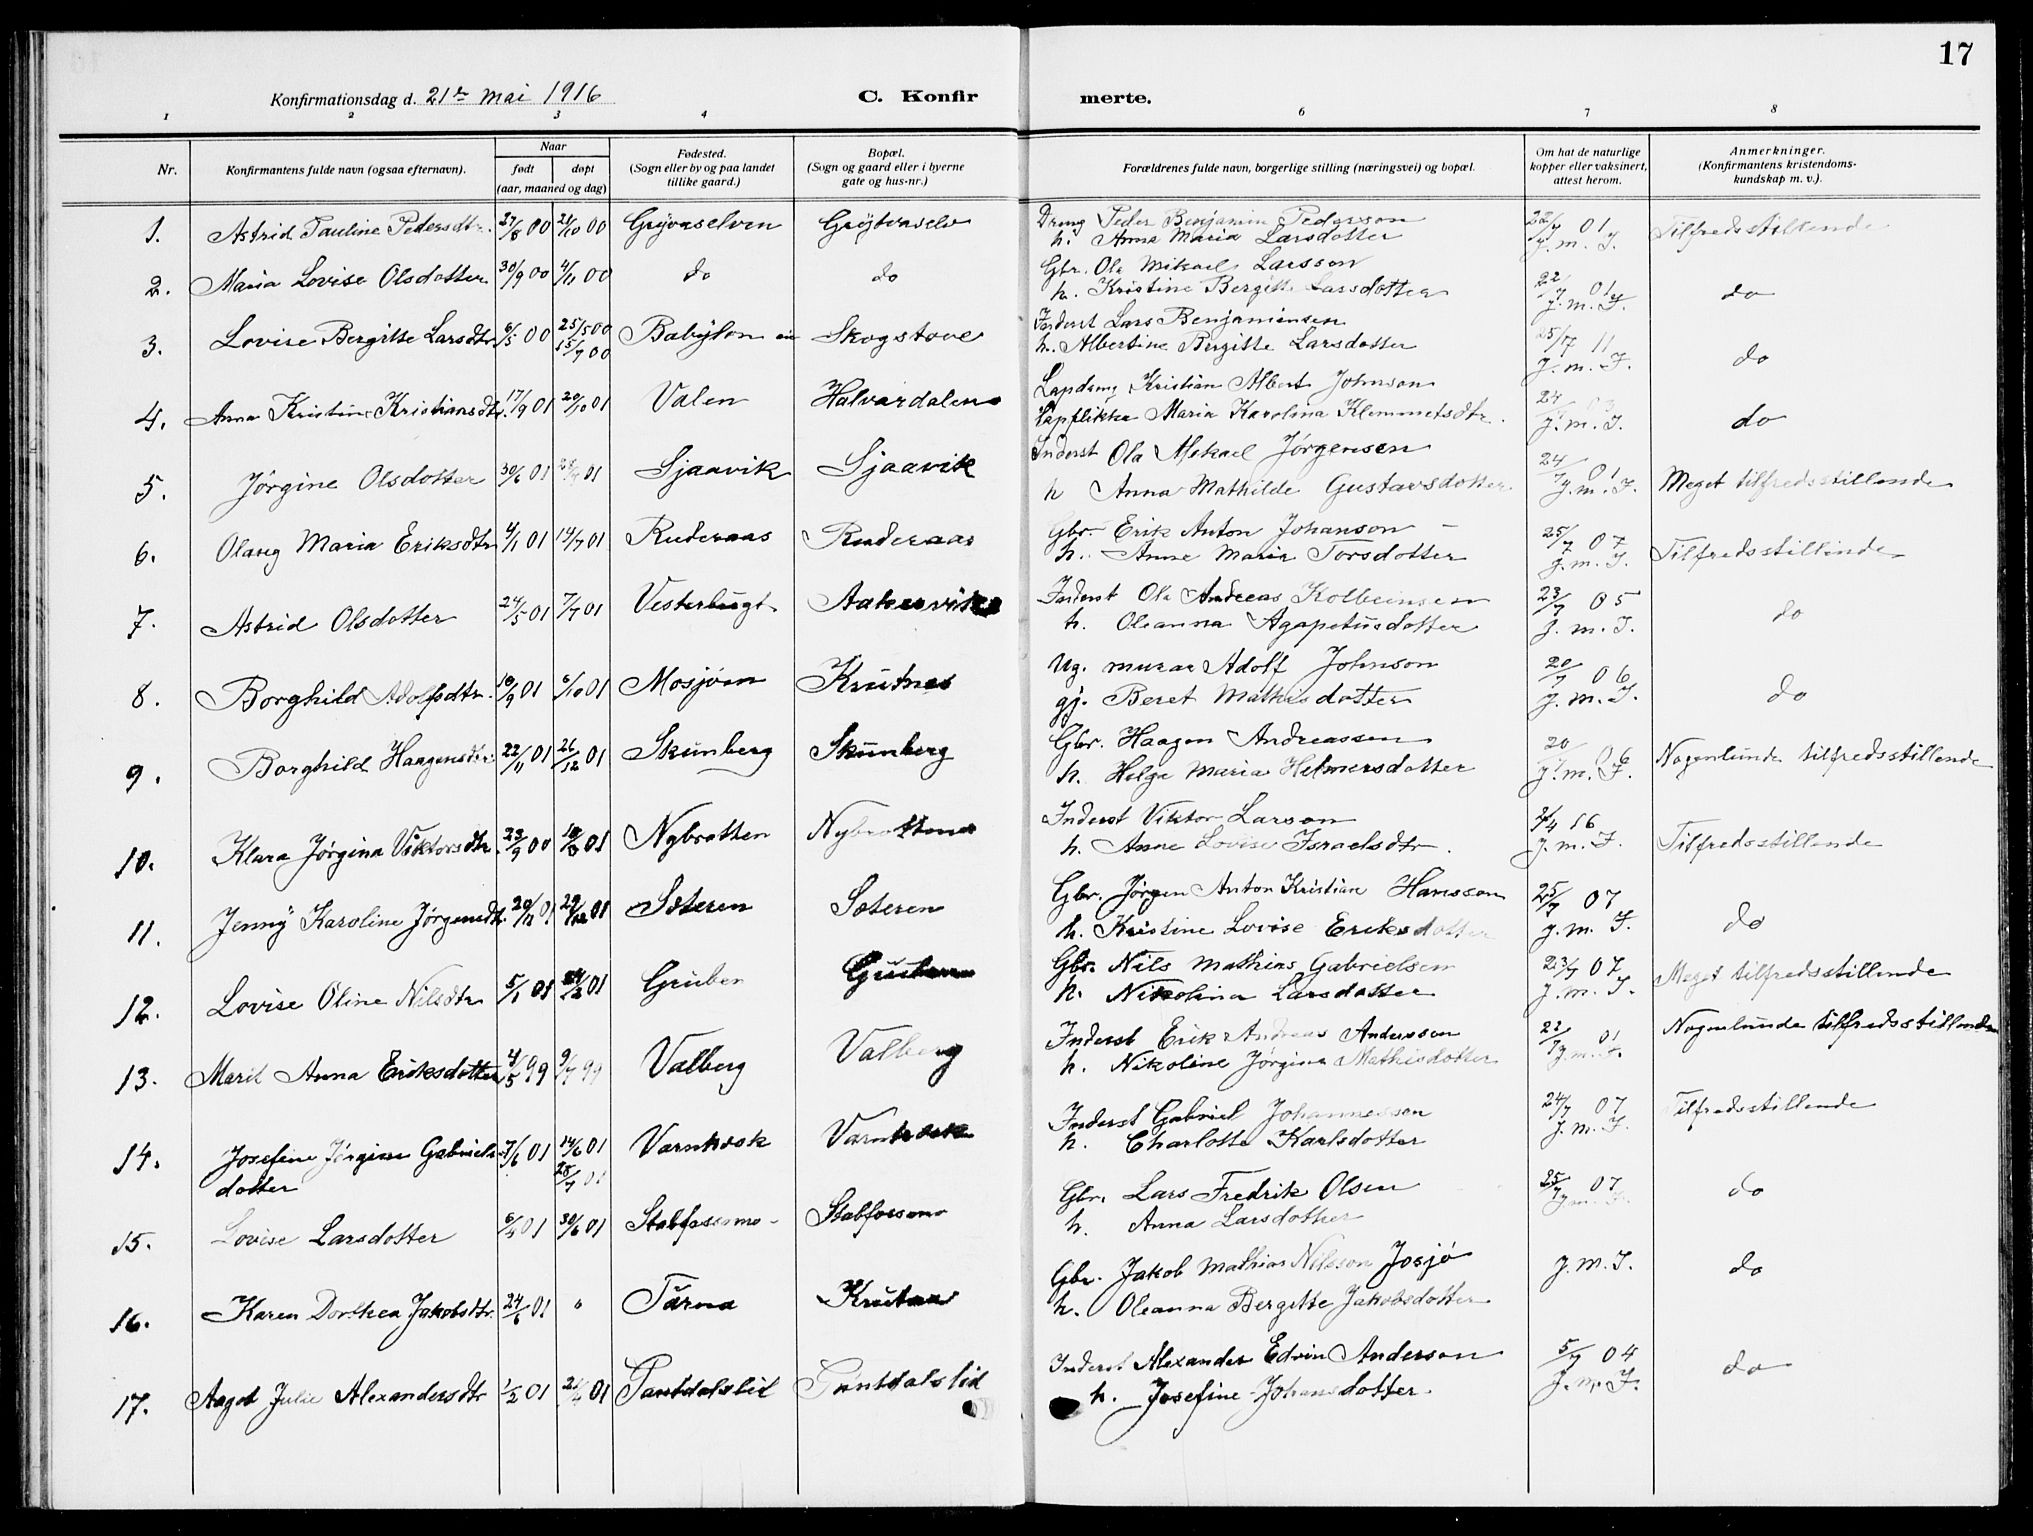 17
Konfirmationsdag d. 21de mai 1916 C. Konfir merte.
1 2 3 4 6 7 8
Nr. Konfirmantens fulde navn (ogsaa efternavn). Naar født døpt (aar, maaned og dag) Fødested. (Sogn eller by og paa landet tillike gaard.) Bopæl. (Sogn og gaard eller i byerne gate og hus-nr.) Forældrenes fulde navn, borgerlige stilling (næringsvei) og bopæl. Om hat de naturlige kopper eller vaksinert, attest herom. Anmerkninger. (Konfirmantens kristendomskundskap m. v.).
1. Astrid Pauline Pedersdtr. 27/8 00 21/10 00 Grøvaselven Grøjtvaselv Dreng Peder Benjamin Pederson 22/7 01 Tilfredsstillende
h. Anna Maria Larsdotter J. m. J.
2. Maria Lovise Olsdotter 30/9 00 4/11 00 do do Gbr. Ola Mikael Larsson 22/7 01 do
h. Kristine Bergitte Larsdotter J. m. J.
3. Lovise Bergitte Larsdtr 6/5 00 25/5 00 15/7 00 Babylon Skogstove Inderst Lars Benjaminsen 25/7 11 do
h. Albertine Birgitte Larsdotter J. m. J.
4. Anna Kristine Kristiansdtr. 17/9 01 20/10 01 Valen Halvardalen Lapdreng Kristian Albert Johnson 24/7 do
Lapflikka Maria Karolina Klemmetsdtr. J. m. J.
5. Jørgine Olsdotter 30/6 01 01 Sjaavik Sjaavik Inderst Ola Mekael Jørgensen 24/7 01 Meget tilfredsstillende
h Anna Mathilde Gustavsdotter J. m. J.
6. Olaug Maria Eriksdtr 4/1 01 14/7 01 Ruderaas Ruderaas Gbr. Erik Anton Johanson 25/7 07 Tilfredsstillende
h. Anne Maria Torsdotter J. m. J.
7. Astrid Olsdotter 24/5 01 7/7 01 Vesterbugt Aakervik Inderst Ola Andreas Kolbeinsen 23/7 05 do
h. Oleanna Agapetusdotter J. m. J.
8. Borghild Adolfsdtr. 18/9 01 6/10 01 Mosjøen Krutnes Ug. murar Adolf Johnson 20/7 06 do
gj. Beret Mathisdotter J. m. J.
9. Borghild Haagensdtr. 22/11 01 26/12 01 Skunberg Skunberg Gbr. Haagen Andreassen 20/7 06 Nogenlunde tilfredsstillende
h. Helga Maria Helmersdotter J. m. J.
10. Klara Jørgina Viktorsdtr. 23/9 00 01 Nybrotten Nybrotten Inderst Viktor Larson 16 Tilfredsstillende
h. Anne Lovise Israelsdtr. J. m. J.
11. Jenny Karoline Jørgensdtr. 20/11 01 29/12 01 Soteren Soteren Gbr. Jørgen Anton Kristian Hansson 25/7 07 do
h. Kristine Lovise Eriksdotter J. m. J.
12. Lovise Oline Nilsdtr 5/1 01 01 Gruben Gruben Gbr. Nils Mathias Gabrielsen 23/7 07 Meget tilfredsstillende
h. Nikolina Larsdotter J. m. J.
13. Marit Anna Eriksdotter 4/5 99 9/7 99 Valberg Valberg Inderst Erik Andreas Anderson 22/7 01 Nogenlunde tilfredsstillende
h. Nikoline Jørgina Mathisdotter J. m. J.
14. Josefine Jørgine Gabriels- 7/6 01 14/6 01 Varntræsk Varntræsk Inderst Gabriel Johannesson 24/7 07 Tilfredsstillende
dotter 28/7 01 h. Charlotta Karlsdotter J. m. J.
15. Lovise Larsdotter 01 30/6 01 Stabfossmo Stabfossmo Gbr. Lars Fredrik Olsen 25/7 07 do
h. Anna Larsdotter J. m. J.
16. Karen Dorthea Jakobsdtr. 24/6 01 " Tärna Krutaa Gbr. Jakob Mathias Nilsson Josjö J. m. J. do
h. Oleanna Bergitte Jakobsdotter
17. Aagot Julie Alexandersdtr 1/2 01 21/4 01 Tantdalslid Tantdalslid Inderst Alexander Edvin Anderson 5/7 04 do
h. Josefine Johansdotter J. m. J.